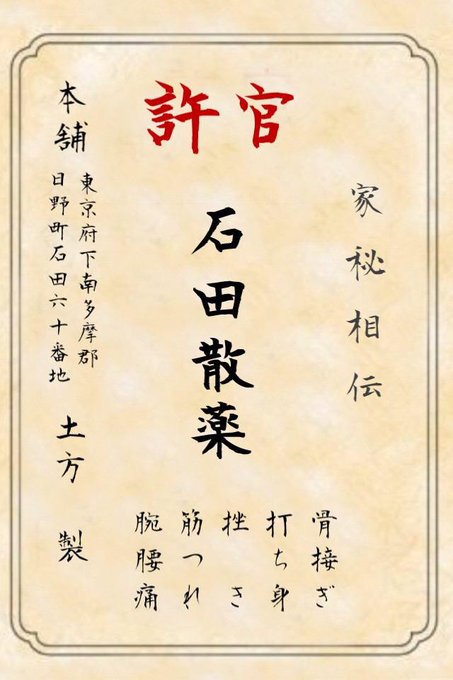 官許
家秘相伝
石田散薬
骨接ぎ
打ち身
挫き
筋つれ
腕腰痛
本舗
東京府下南多摩郡
日野町石田六十番地
土方 製